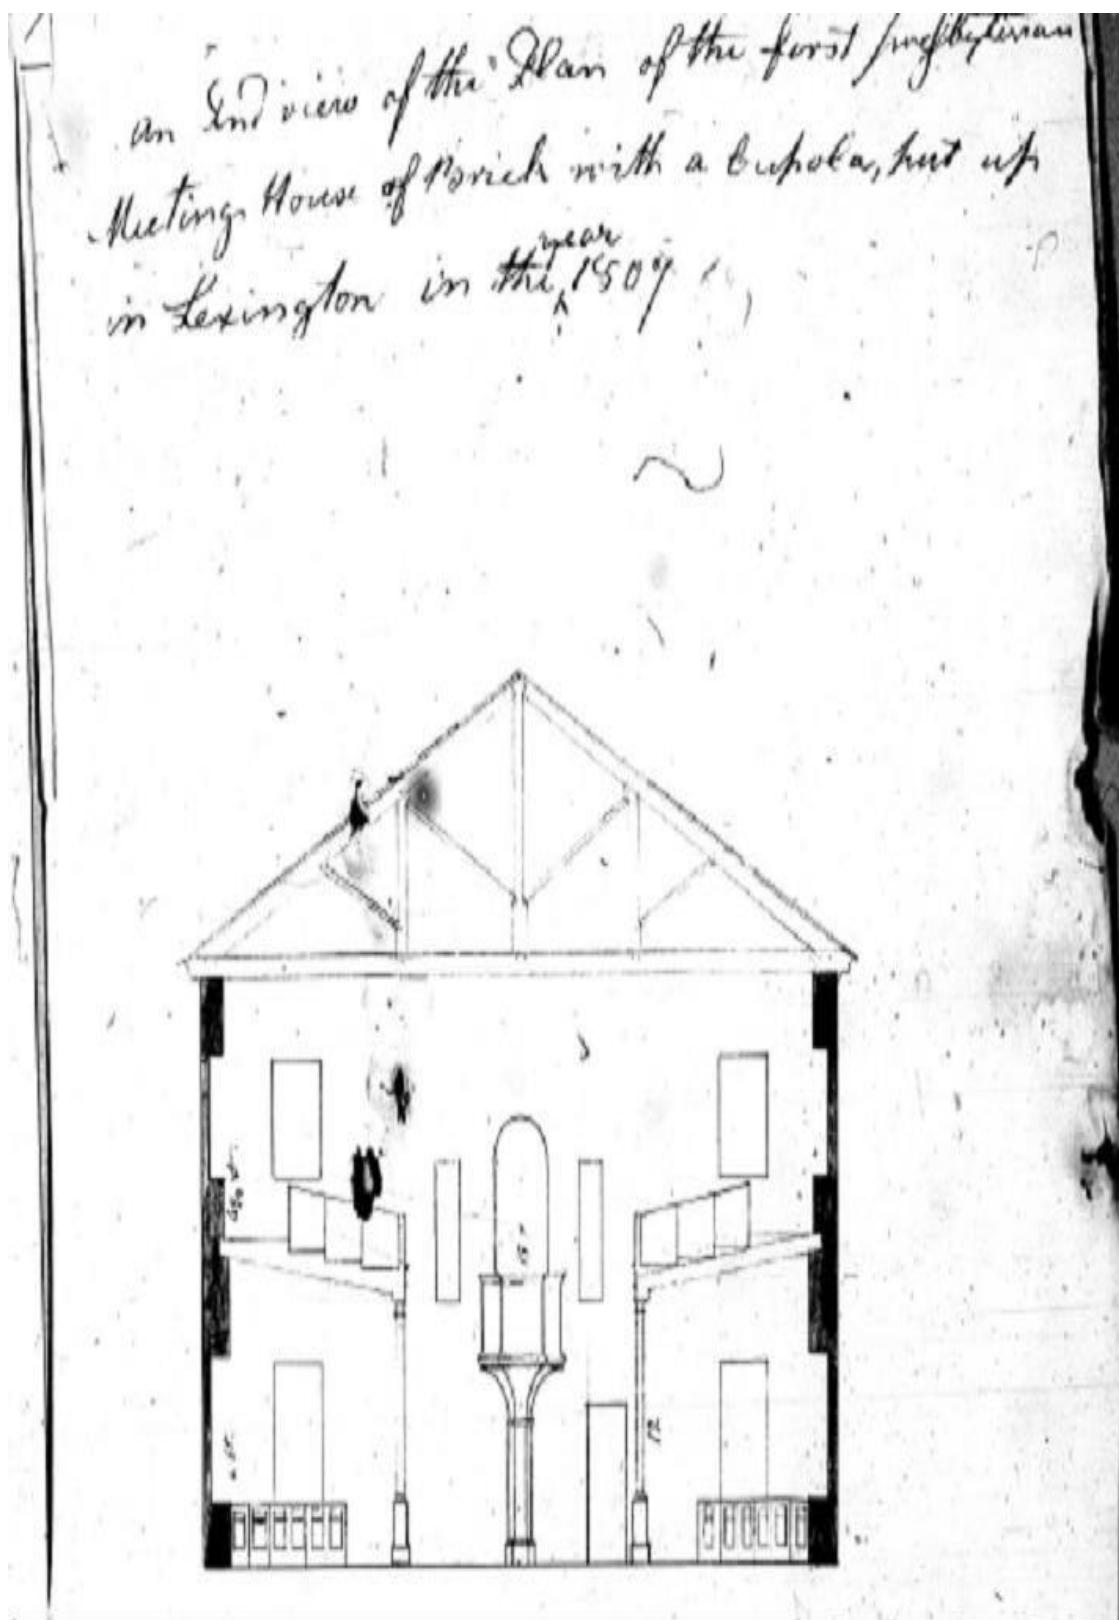 an End view of the Plan of the first presbyterian
Meeting House of Brick with a Cupola, put up
year
in Lexington in the 1807
12